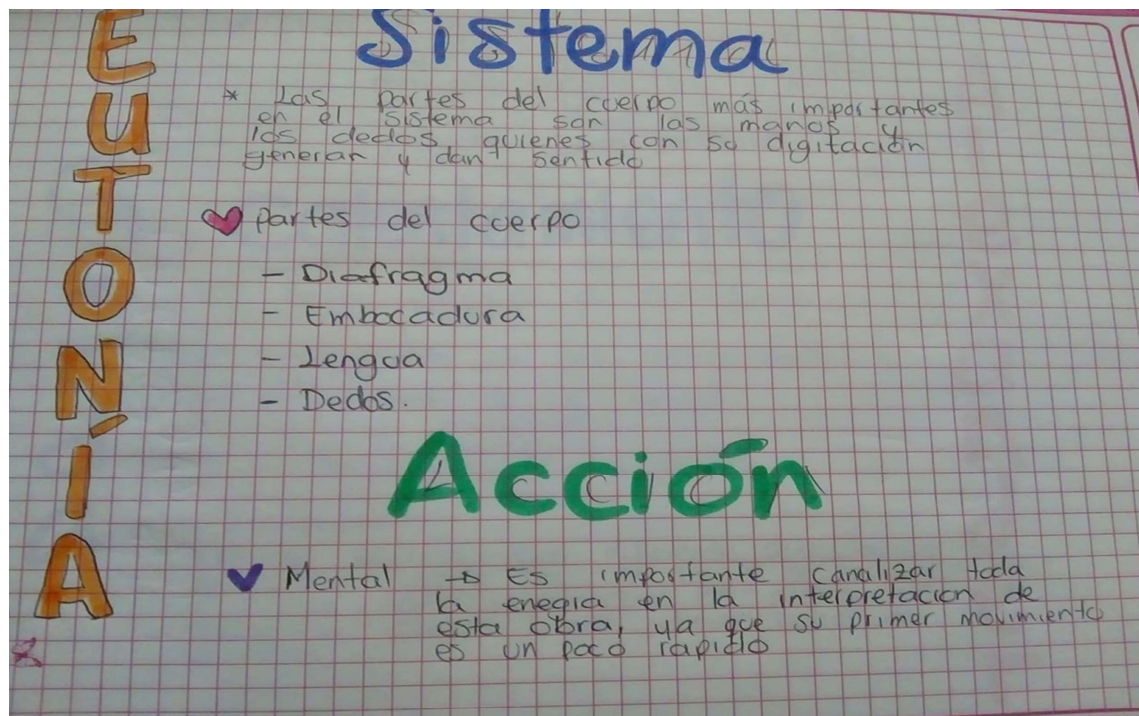 EUTONÍA
Sistema
* Las partes del cuerpo más importantes
en el sistema son las manos y
los dedos quienes con su digitación
generan y dan sentido
Partes del cuerpo
- Diafragma
- Embocadura
- Lengua
- Dedos.
Acción
Mental → Es importante canalizar toda
la enegia en la interpretacion de
esta obra, ya que su primer movimiento
es un poco rapido